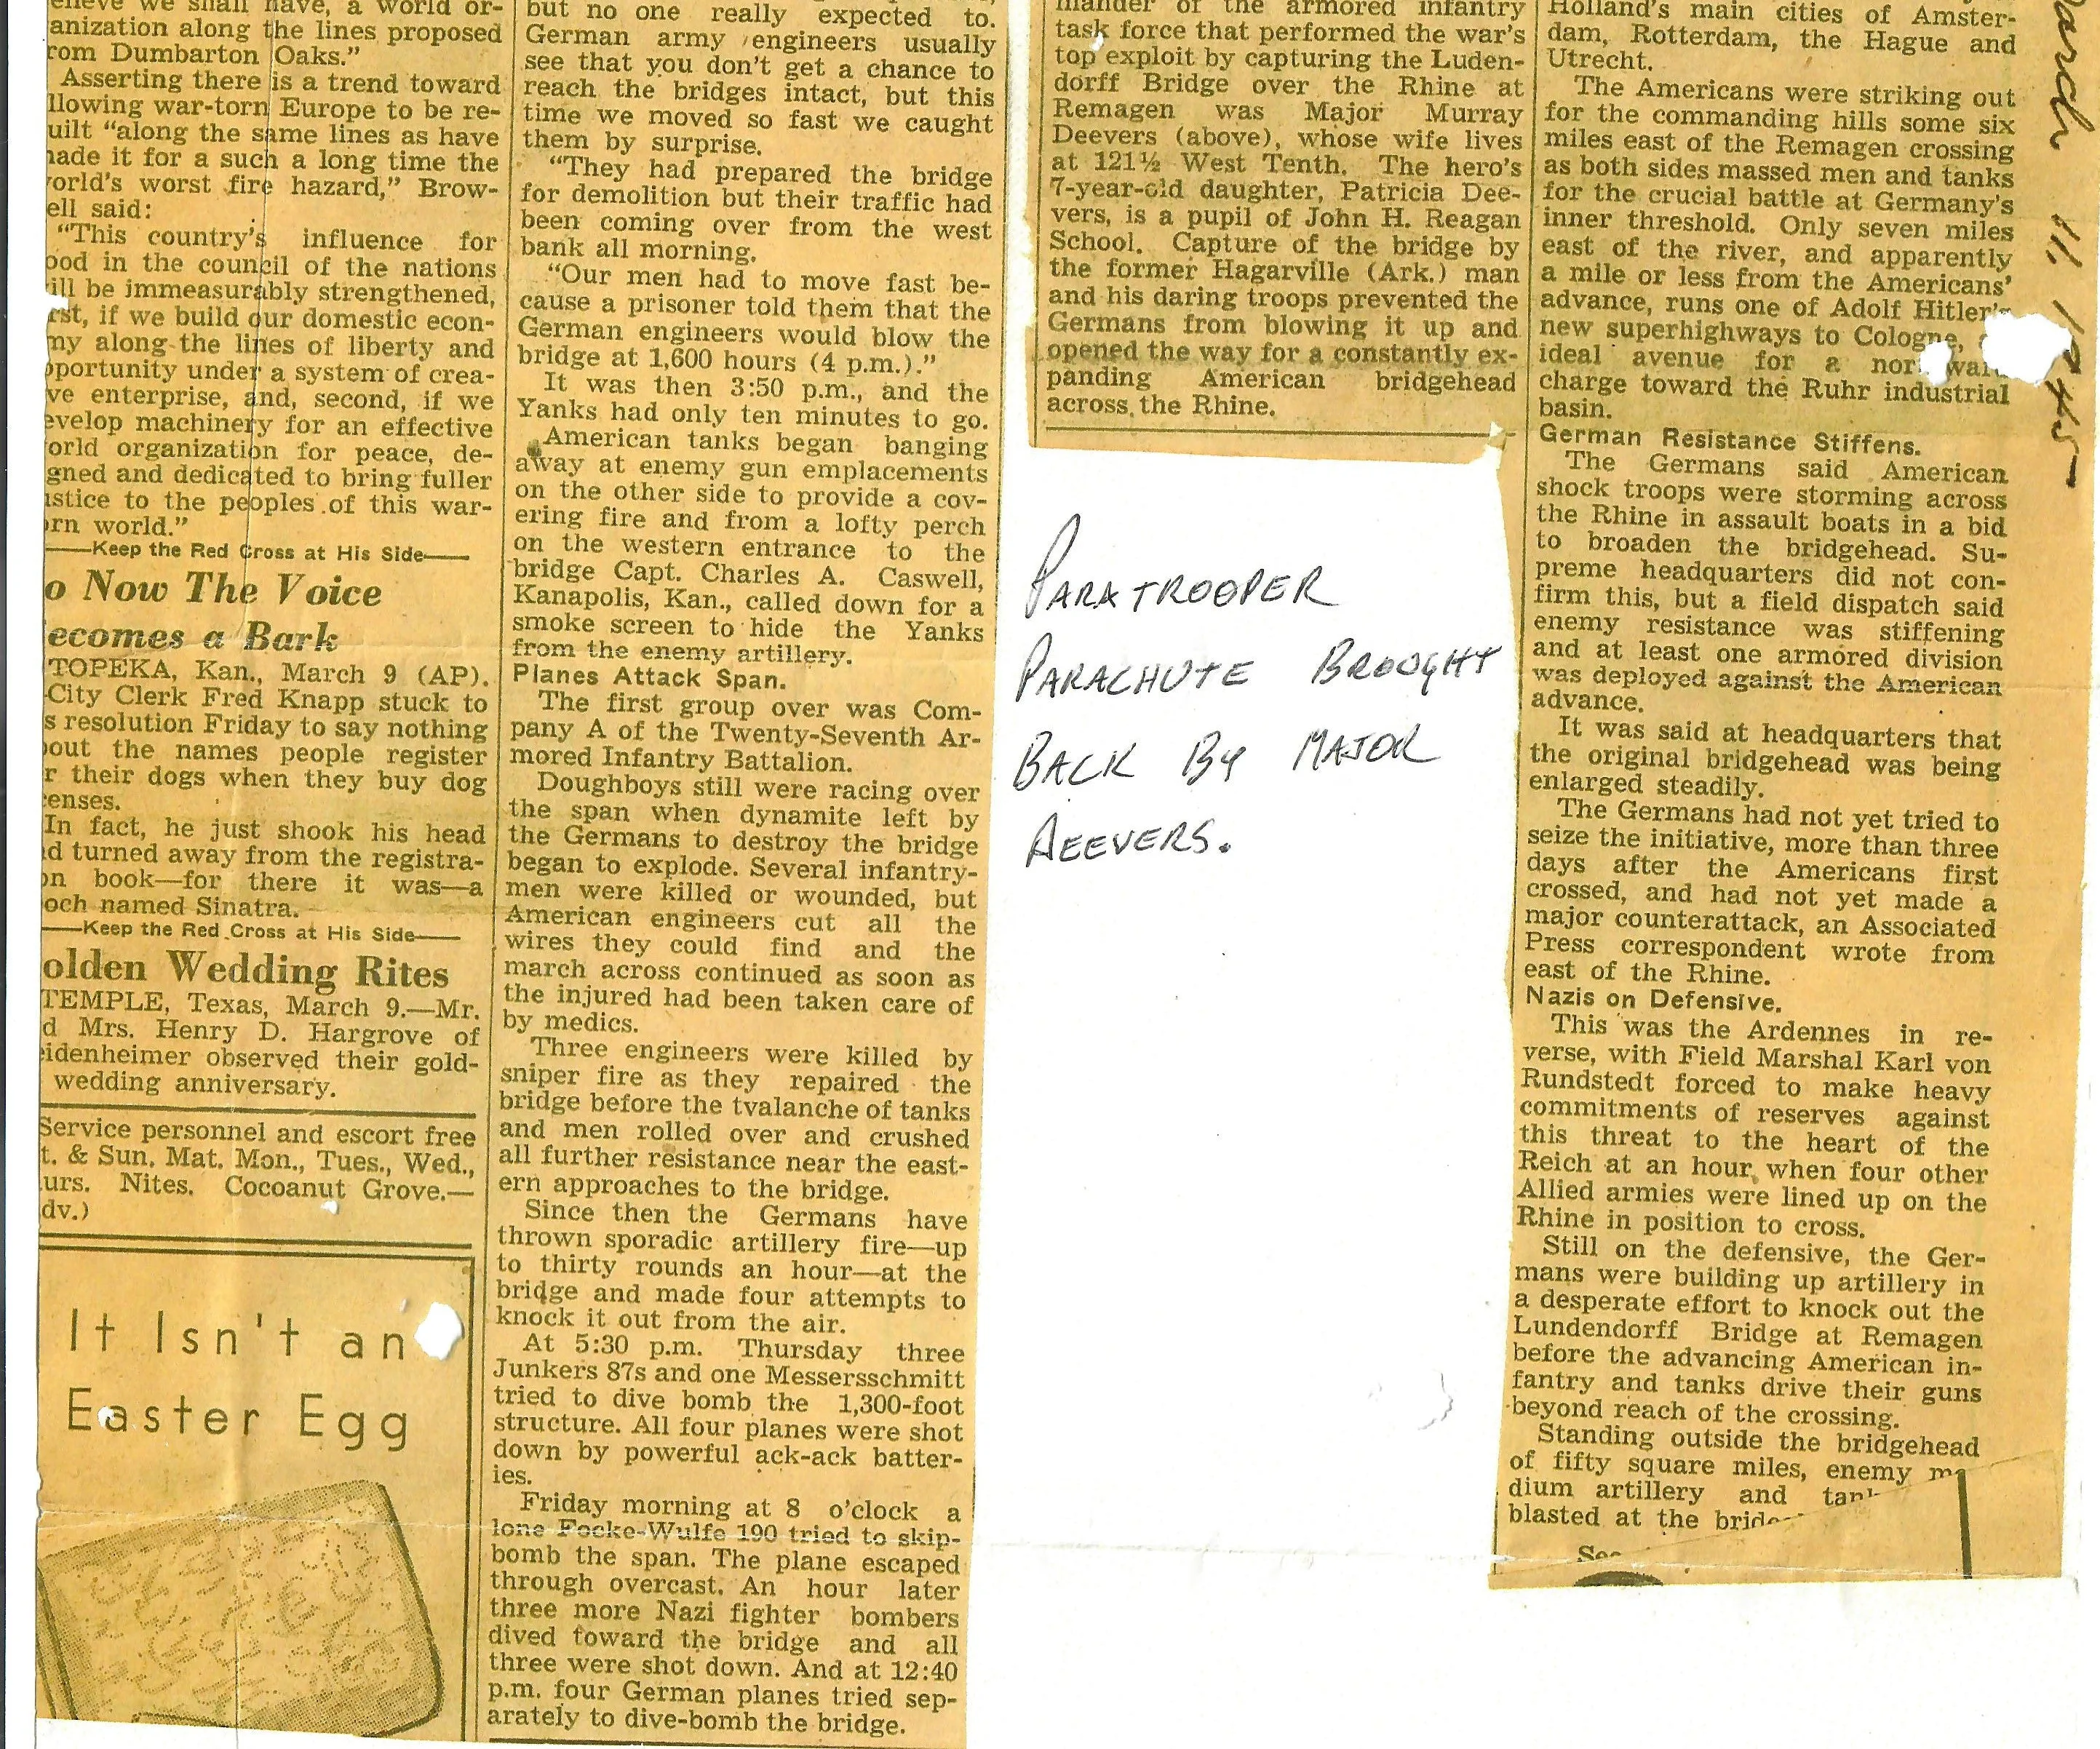 elieve we shall have, a world or-
anization along the lines proposed
rom Dumbarton Oaks."
Asserting there is a trend toward
llowing war-torn Europe to be re-
uilt "along the same lines as have
nade it for a such a long time the
orld's worst fire hazard," Brow-
ell said:
"This country's influence for
ood in the council of the nations
ill be immeasurably strengthened,
rst, if we build our domestic econ-
my along the lines of liberty and
pportunity under a system of crea-
ve enterprise, and, second, if we
evelop machinery for an effective
orld organization for peace, de-
gned and dedicated to bring fuller
ustice to the peoples of this war-
orn world."
——Keep the Red Cross at His Side——
o Now The Voice
ecomes a Bark
TOPEKA, Kan., March 9 (AP).
City Clerk Fred Knapp stuck to
s resolution Friday to say nothing
out the names people register
r their dogs when they buy dog
enses.
In fact, he just shook his head
d turned away from the registra-
on book—for there it was—a
och named Sinatra.
——Keep the Red Cross at His Side——
olden Wedding Rites
TEMPLE, Texas, March 9.—Mr.
d Mrs. Henry D. Hargrove of
eidenheimer observed their gold-
wedding anniversary.
Service personnel and escort free
t. & Sun. Mat. Mon., Tues., Wed.,
urs. Nites. Cocoanut Grove.—
dv.)
It Isn't an
Easter Egg
but no one really expected to.
German army engineers usually
see that you don't get a chance to
reach the bridges intact, but this
time we moved so fast we caught
them by surprise.
"They had prepared the bridge
for demolition but their traffic had
been coming over from the west
bank all morning.
"Our men had to move fast be-
cause a prisoner told them that the
German engineers would blow the
bridge at 1,600 hours (4 p.m.)."
It was then 3:50 p.m., and the
Yanks had only ten minutes to go.
American tanks began banging
away at enemy gun emplacements
on the other side to provide a cov-
ering fire and from a lofty perch
on the western entrance to the
bridge Capt. Charles A. Caswell,
Kanapolis, Kan., called down for a
smoke screen to hide the Yanks
from the enemy artillery.
Planes Attack Span.
The first group over was Com-
pany A of the Twenty-Seventh Ar-
mored Infantry Battalion.
Doughboys still were racing over
the span when dynamite left by
the Germans to destroy the bridge
began to explode. Several infantry-
men were killed or wounded, but
American engineers cut all the
wires they could find and the
march across continued as soon as
the injured had been taken care of
by medics.
Three engineers were killed by
sniper fire as they repaired the
bridge before the tvalanche of tanks
and men rolled over and crushed
all further resistance near the east-
ern approaches to the bridge.
Since then the Germans have
thrown sporadic artillery fire—up
to thirty rounds an hour—at the
bridge and made four attempts to
knock it out from the air.
At 5:30 p.m. Thursday three
Junkers 87s and one Messersschmitt
tried to dive bomb the 1,300-foot
structure. All four planes were shot
down by powerful ack-ack batter-
ies.
Friday morning at 8 o'clock a
lone Focke-Wulfe 190 tried to skip-
bomb the span. The plane escaped
through overcast. An hour later
three more Nazi fighter bombers
dived toward the bridge and all
three were shot down. And at 12:40
p.m. four German planes tried sep-
arately to dive-bomb the bridge.
mander of the armored infantry
task force that performed the war's
top exploit by capturing the Luden-
dorff Bridge over the Rhine at
Remagen was Major Murray
Deevers (above), whose wife lives
at 121½ West Tenth. The hero's
7-year-old daughter, Patricia Dee-
vers, is a pupil of John H. Reagan
School. Capture of the bridge by
the former Hagarville (Ark.) man
and his daring troops prevented the
Germans from blowing it up and
opened the way for a constantly ex-
panding American bridgehead
across the Rhine.
PARATROOPER
PARACHUTE BROUGHT
BACK BY MAJOR
DEEVERS.
Holland's main cities of Amster-
dam, Rotterdam, the Hague and
Utrecht.
The Americans were striking out
for the commanding hills some six
miles east of the Remagen crossing
as both sides massed men and tanks
for the crucial battle at Germany's
inner threshold. Only seven miles
east of the river, and apparently
a mile or less from the Americans'
advance, runs one of Adolf Hitler's
new superhighways to Cologne,
ideal avenue for a nor ward
charge toward the Ruhr industrial
basin.
German Resistance Stiffens.
The Germans said American
shock troops were storming across
the Rhine in assault boats in a bid
to broaden the bridgehead. Su-
preme headquarters did not con-
firm this, but a field dispatch said
enemy resistance was stiffening
and at least one armored division
was deployed against the American
advance.
It was said at headquarters that
the original bridgehead was being
enlarged steadily.
The Germans had not yet tried to
seize the initiative, more than three
days after the Americans first
crossed, and had not yet made a
major counterattack, an Associated
Press correspondent wrote from
east of the Rhine.
Nazis on Defensive.
This was the Ardennes in re-
verse, with Field Marshal Karl von
Rundstedt forced to make heavy
commitments of reserves against
this threat to the heart of the
Reich at an hour when four other
Allied armies were lined up on the
Rhine in position to cross.
Still on the defensive, the Ger-
mans were building up artillery in
a desperate effort to knock out the
Lundendorff Bridge at Remagen
before the advancing American in-
fantry and tanks drive their guns
beyond reach of the crossing.
Standing outside the bridgehead
of fifty square miles, enemy me
dium artillery and tank
blasted at the bridge
See
arch 11, 1945